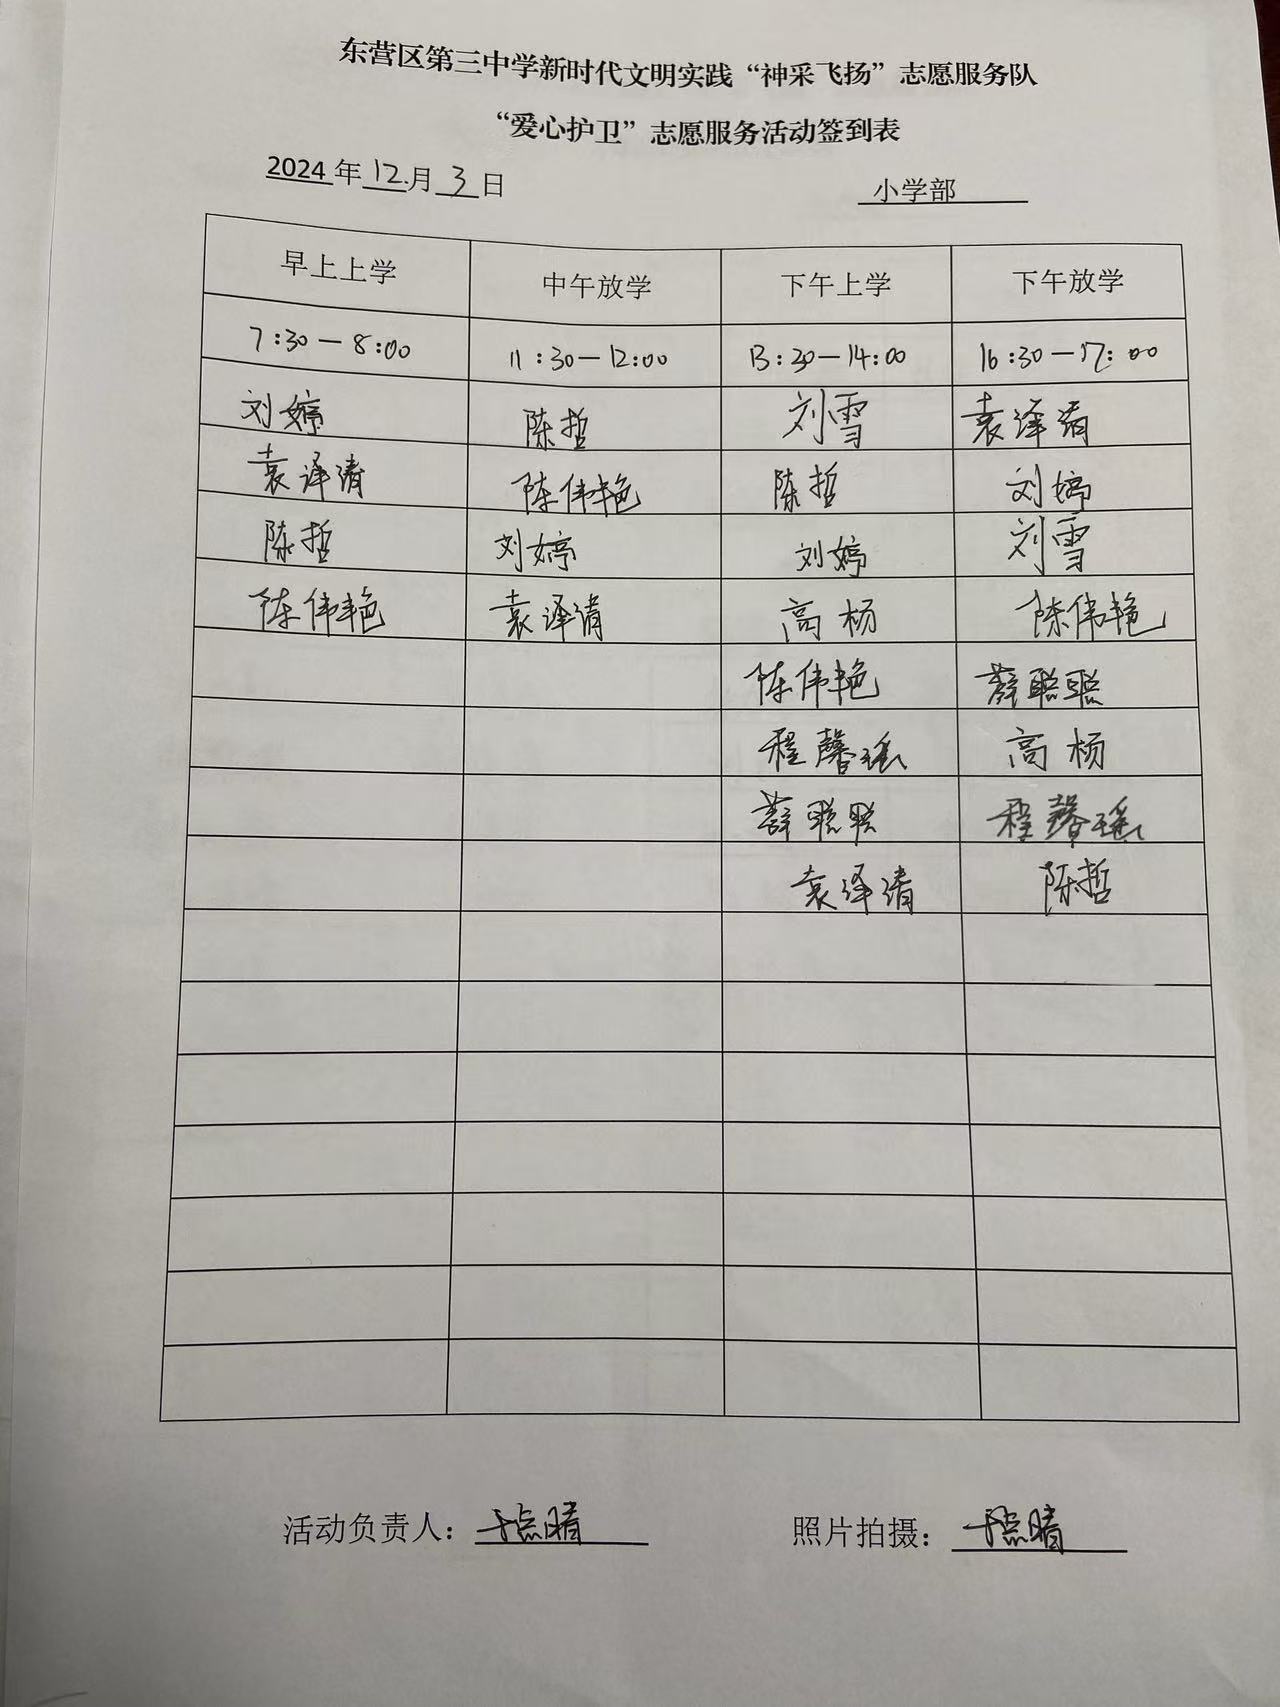 东营区第三中学新时代文明实践“神采飞扬”志愿服务队
“爱心护卫”志愿服务活动签到表
2024 年 12 月 3 日 小学部
早上上学 中午放学 下午上学 下午放学
7:30—8:00 11:30—12:00 13:30—14:00 16:30—17:00
刘婷 陈哲 刘雪 袁泽清
袁泽清 陈伟艳 陈哲 刘婷
陈哲 刘婷 刘婷 刘雪
陈伟艳 袁泽清 高杨 陈伟艳
陈伟艳 薛聪聪
程馨瑶 高杨
薛聪聪 程馨瑶
袁泽清 陈哲
活动负责人：于点晴 照片拍摄：于点晴